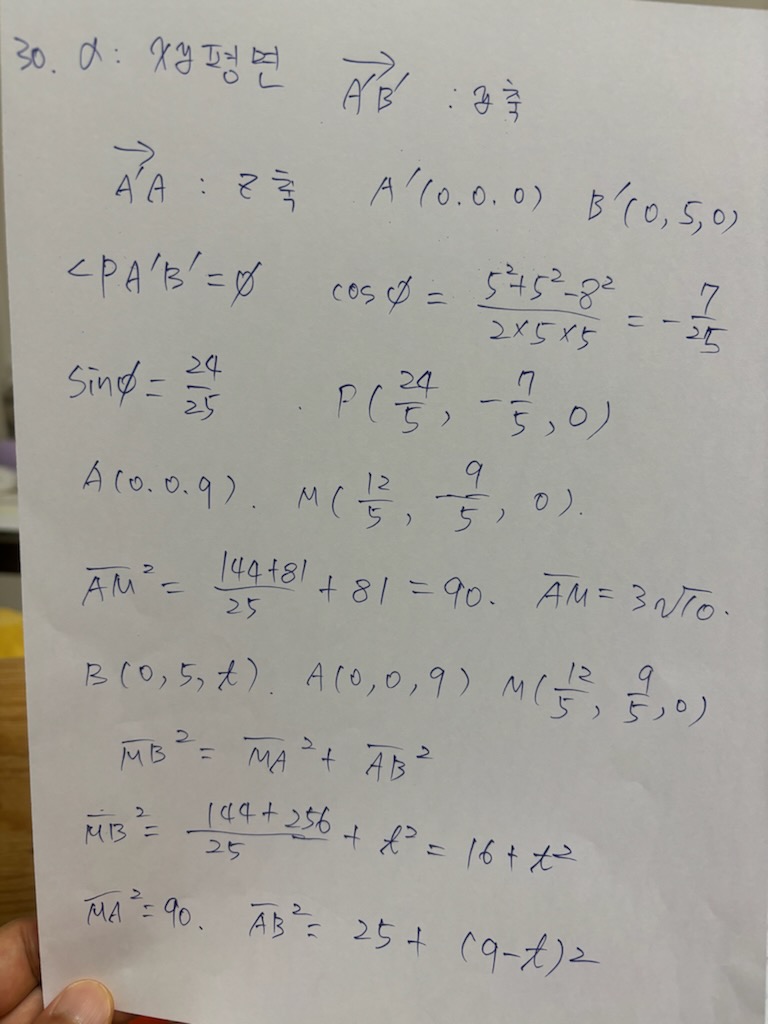 30. α: xy평면 $\overrightarrow{A'B'}$ : y축
$\overrightarrow{A'A}$ : z축 A'(0.0.0) B'(0,5,0)
<PA'B'=∅ cos∅ = $\frac{5^2+5^2-8^2}{2×5×5}$ = -$\frac{7}{25}$
sin∅ = $\frac{24}{25}$ . P($\frac{24}{5}$, -$\frac{7}{5}$, 0)
A(0.0.9). M($\frac{12}{5}$, $\frac{9}{5}$, 0).
$\overline{AM}^2$ = $\frac{144+81}{25}$ + 81 = 90. $\overline{AM}$ = 3√10.
B(0,5,t). A(0,0,9) M($\frac{12}{5}$, $\frac{9}{5}$,0)
$\overline{MB}^2$ = $\overline{MA}^2$ + $\overline{AB}^2$
$\overline{MB}^2$ = $\frac{144+256}{25}$ + t² = 16 + t²
$\overline{MA}^2$ = 90. $\overline{AB}^2$ = 25 + (9-t)²